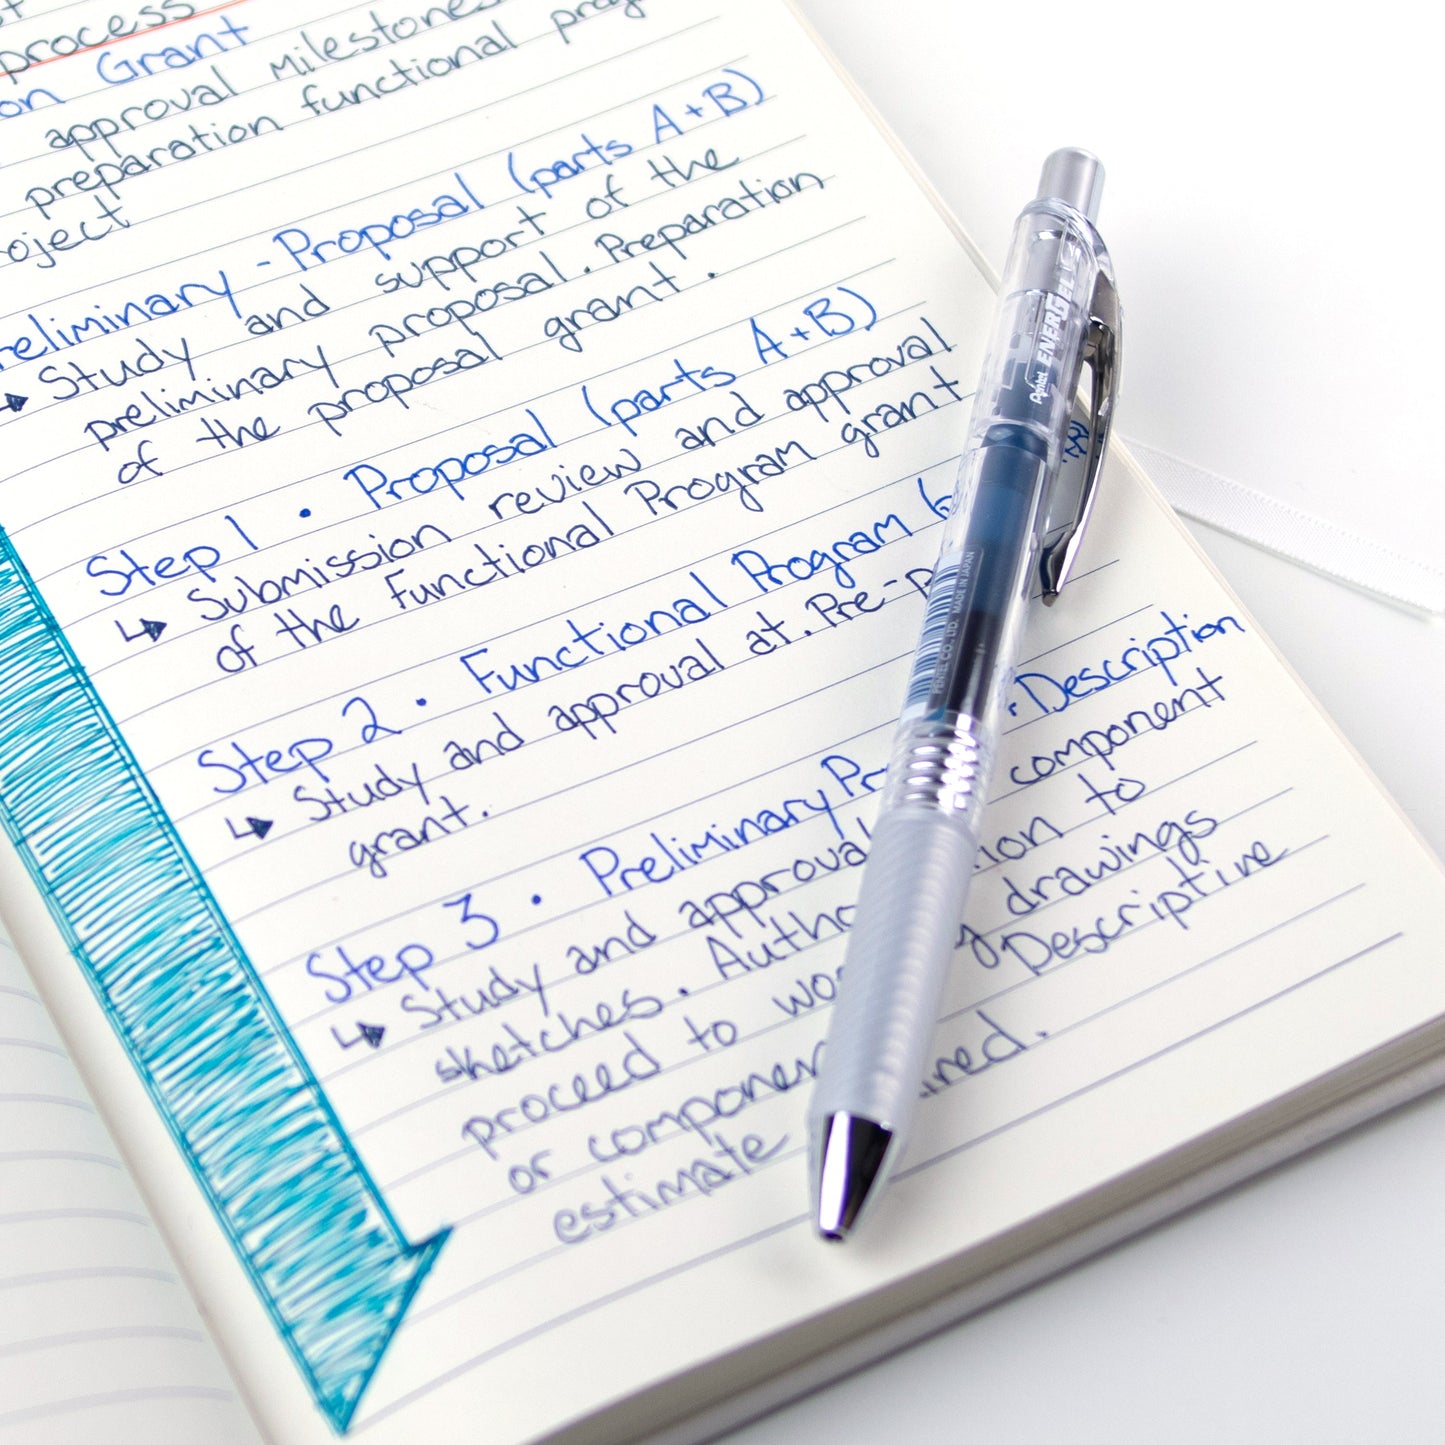 process
on Grant
approval Milestones
preparation functional
oject
reliminary - Proposal (parts A+B)
Study and support of the
preliminary proposal. Preparation
of the proposal grant.
Step 1 · Proposal (parts A+B)
Submission review and approval
of the Functional Program grant
Step 2 · Functional Program
Study and approval at. Pre-
grant.
Step 3 · Preliminary Description
Study and approval component
sketches. to
proceed to drawings
or Descriptive
estimate
Pentel ENERGEL
PENTEL CO., LTD. MADE IN JAPAN